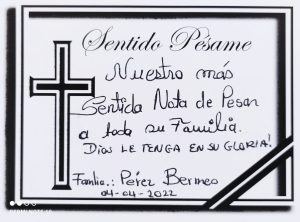 Sentido Pésame
Nuestro más
Sentida Nota de Pesar
a toda su Familia.
Dios LE TENGA EN SU GLORIA!
Familia.: Pérez Bermeo
04-04-2022